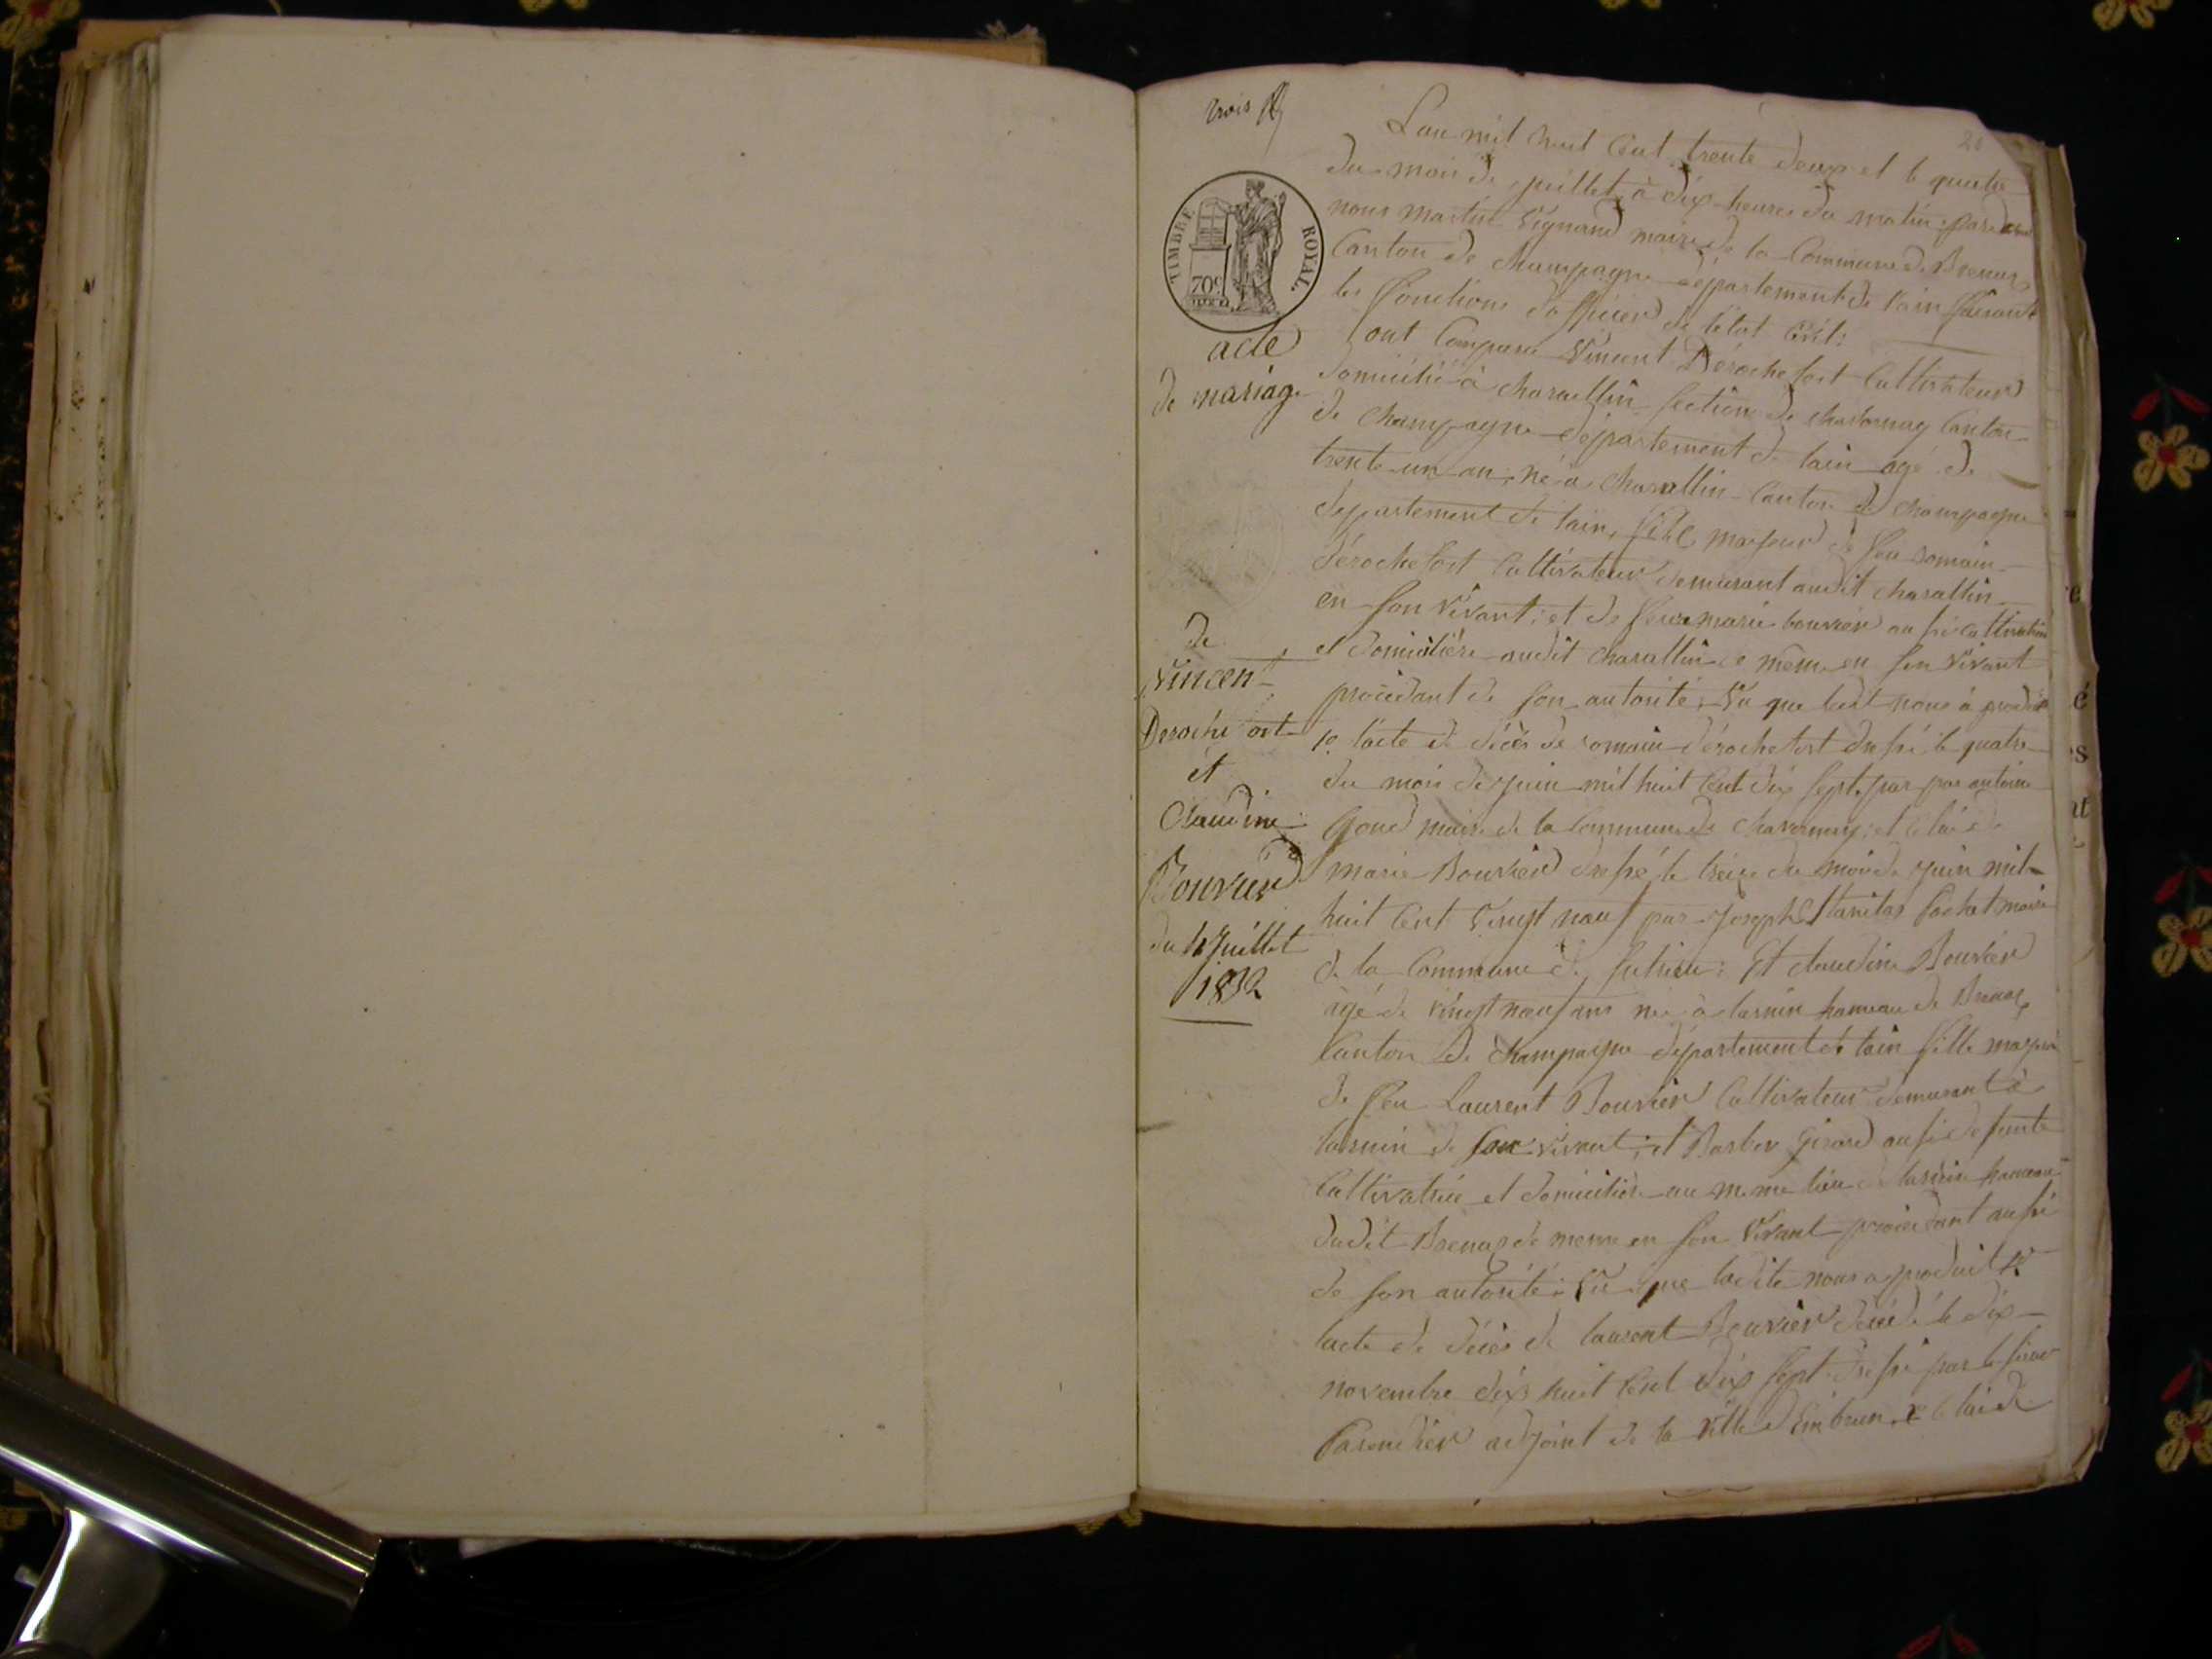 trois
20
TIMBRE ROYAL.
70c
acte
de mariage
de
Vincent
Derochefort
et
Claudine
Bouvier
du 4 Juillet
1832
L'an mil huit cent trente deux et le quatre
du mois de juillet à dix heures du matin: par devant
nous martin Vignand maire de la Commune de Brenaz
Canton de Champagne département de l'ain faisant
les fonctions d'officier de l'état civil:
ont Comparu Vincent Dérochefort Cultivateur
domicilié à charaillin section de charvonay Canton
de Champagne département de lain agé de
trente un an, né à charallin Canton de champagne
département de lain, fils majeur de feu romain
dérochefort Cultivateur demurant audit charallin
en son vivant; et de feue marie bouvier aussi cultivatrice
et domicilière audit charallin de même en son vivant
procédant de son autorité; Vu que ledit nous à produit
1º lacte de décès de romain dérochefort dressé le quatre
du mois de juin mil huit Cent dix sept par par antoine
Goud maire de la Commune de chavornay; et celui de
marie Bouvier dressé le treize du mois de juin mil
huit Cent vingt neuf par Joseph Stanilas Cochet maire
de la Commune de Sutrieu: Et claudine Bouvier
âgé de vingt neuf ans née à lasnin hameau de Brenaz
Canton de Champagne département de lain fille majeure
de feu Laurent Bouvier Cultivateur demurant à
de son vivant; et Barbe Girard aussi defunte
Cultivatrice et domicilière au même lieu de hameau
dudit Brenaz de meme en son vivant procédant aussi
de son autorité: Vu que ladite nous a produit 1º
lacte de décès de laurent Bouvier décédé le dix
novembre dix huit Cent dix sept dressé par le sieur
adjoint de la ville d'Embrun, 2º celui de